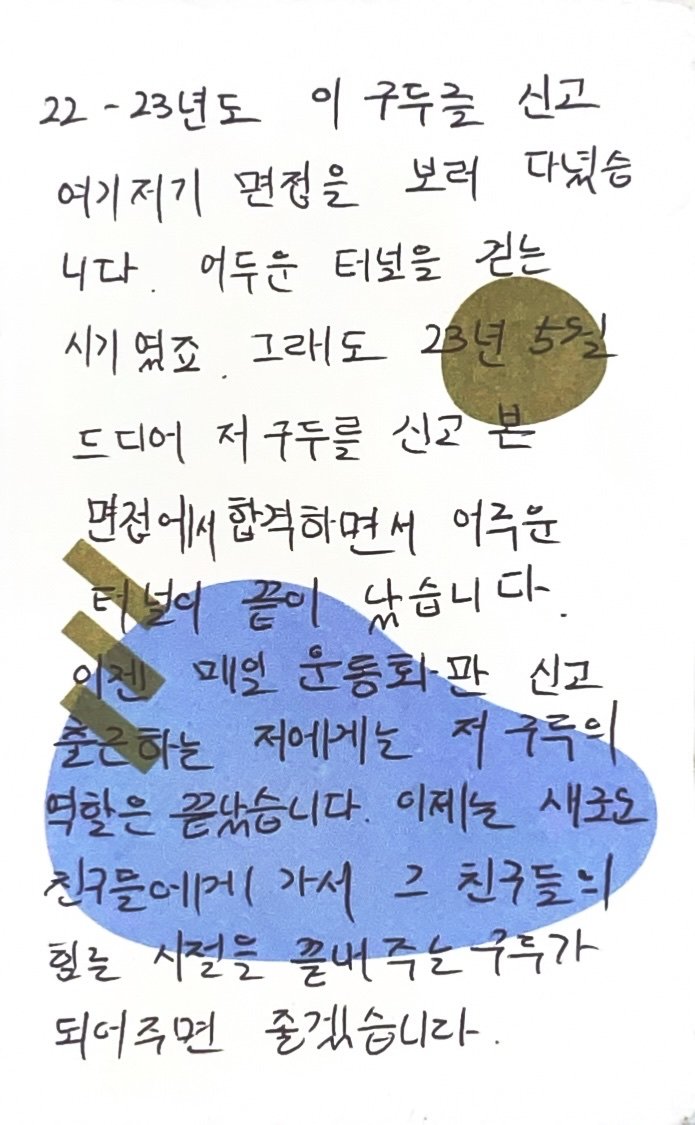 22 - 23년도 이 구두를 신고
여기저기 면접을 보러 다녔습
니다. 어두운 터널을 걷는
시기였죠. 그래도 23년 5월
드디어 저 구두를 신고 본
면접에서 합격하면서 어두운
터널이 끝이 났습니다.
이젠 매일 운동화만 신고
출근하는 저에게는 저 구두의
역할은 끝났습니다. 이제는 새로운
친구들에게 가서 그 친구들의
힘든 시절을 끝내주는 구두가
되어주면 좋겠습니다.